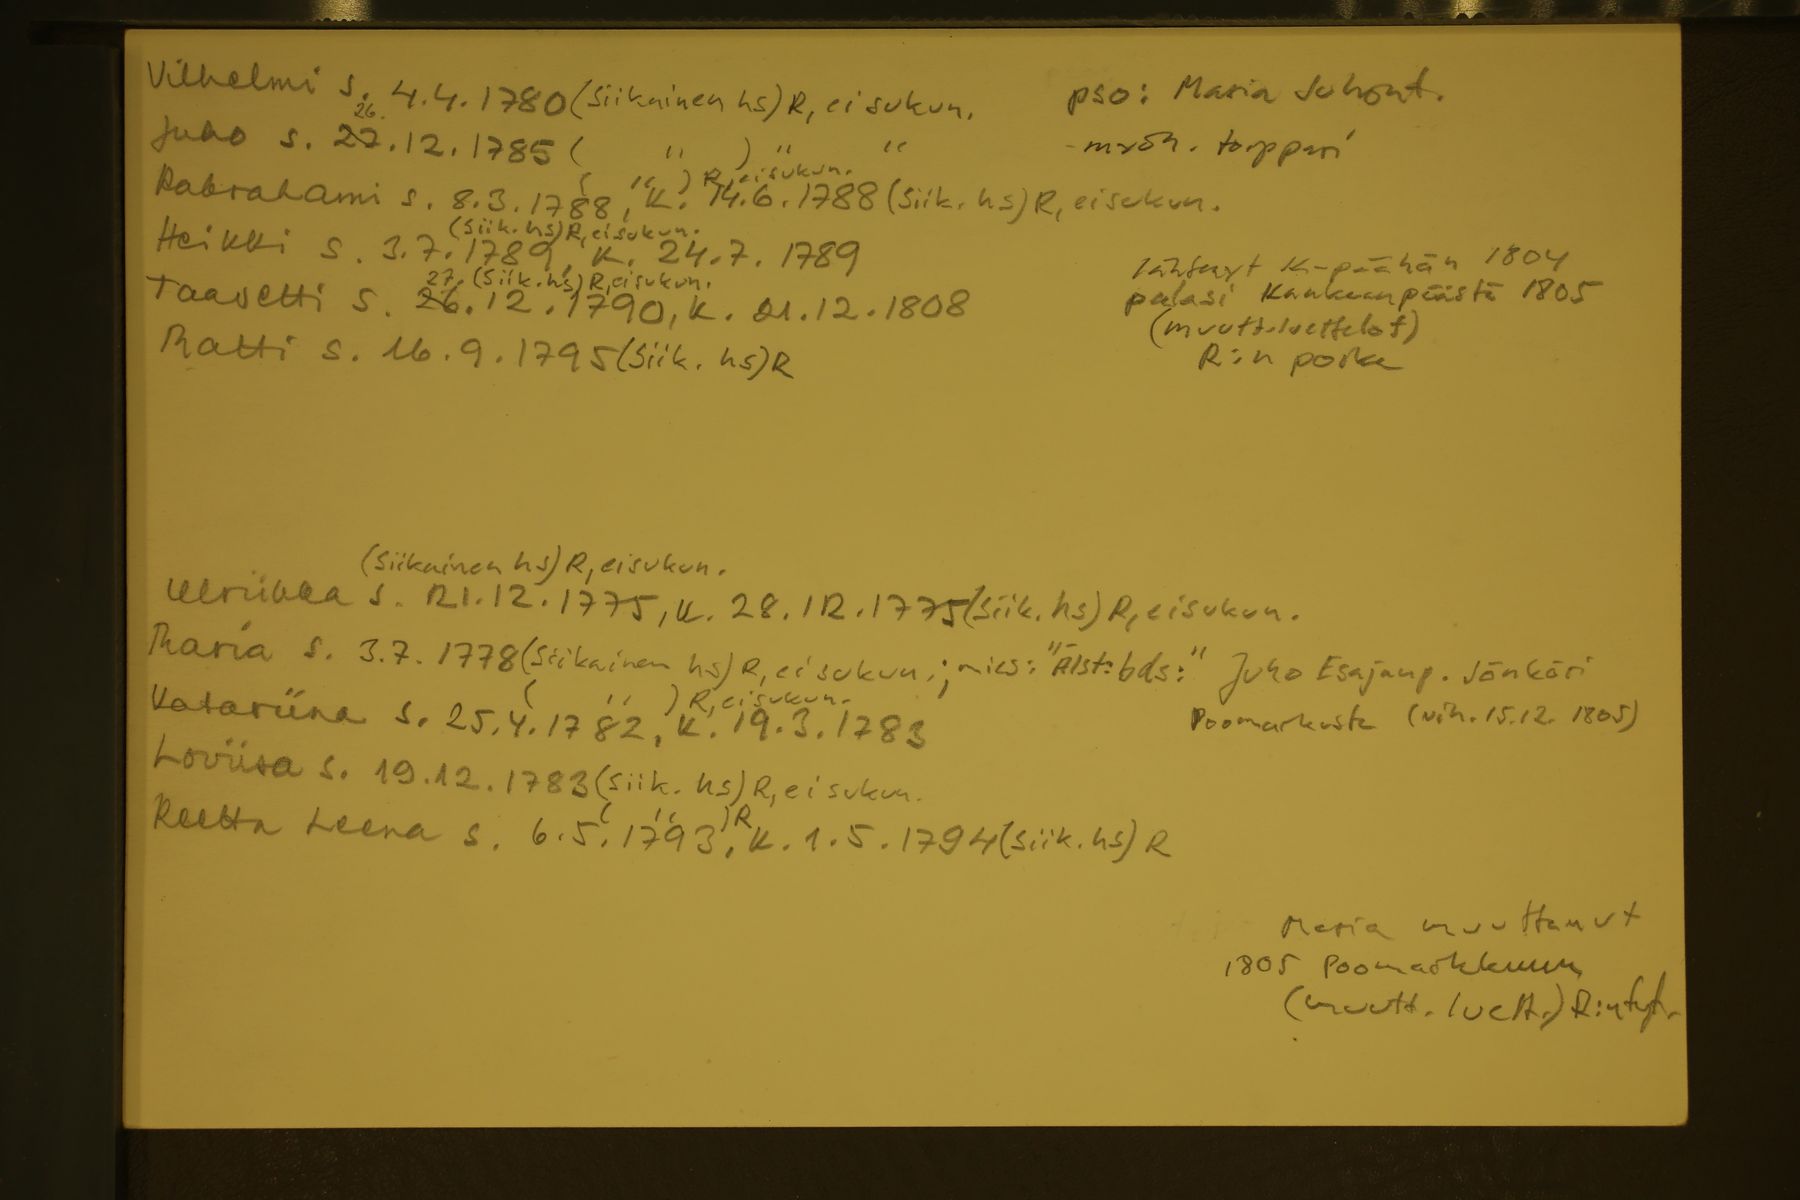 Vilhelmi s. 4.4.1780 (Siikainen hs) R, ei sukun. pso: Maria Juhont.
26.
Juho s. 27.12.1785 ( " ) " " - myöh. torppari
( " ) R, ei sukun.
Aabrahami s. 8.3.1788, k. 14.6.1788 (Siik. hs) R, ei sukun.
(Siik. hs) R, ei sukun.
Heikki s. 3.7.1789, k. 24.7.1789
lähtenyt K-päähän 1804
27. (Siik. hs) R, ei sukun.
Taavetti s. 26.12.1790, k. 21.12.1808
palasi Kankaanpäästä 1805
(muuttoluettelot)
Matti s. 16.9.1795 (Siik. hs) R
R:n poika
(Siikainen hs) R, ei sukun.
Ulriikka s. 21.12.1775, k. 28.12.1775 (Siik. hs) R, ei sukun.
Maria s. 3.7.1778 (Siikainen hs) R, ei sukun.; mies: "Älst:bds:" Juho Esajanp. Jönköri
Poomarkusta (vih. 15.12.1805)
( " ) R, ei sukun.
Katariina s. 25.4.1782, k. 19.3.1783
Loviisa s. 19.12.1783 (Siik. hs) R, ei sukun.
( " ) R
Reetta Leena s. 6.5.1793, k. 1.5.1794 (Siik. hs) R
Maria muuttanut
1805 Poomarkkuun
(muutt. luett.) R:n tyt.